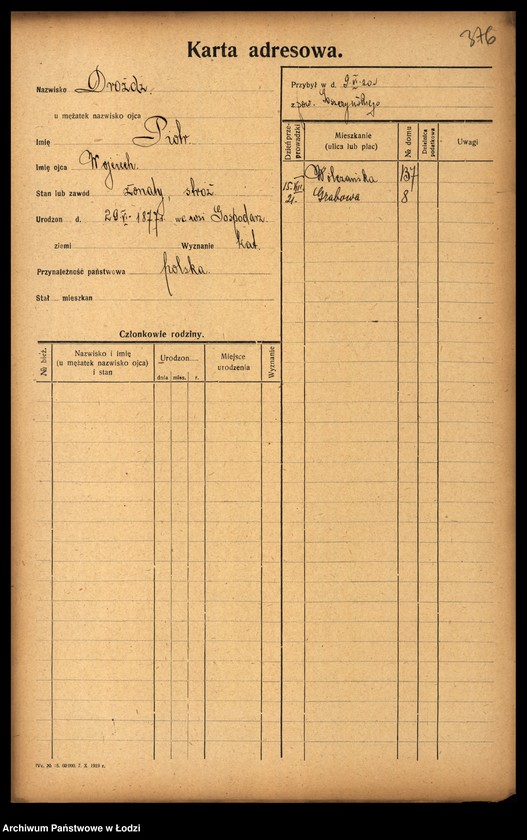 376
Karta adresowa.
Nazwisko Drożdż
u mężatek nazwisko ojca
Imię Piotr
Imię ojca Wojciech
Stan lub zawód żonaty, stróż
Urodzon d. 29 VI 1877 r. we wsi Gospodarz
ziemi Wyznanie kat.
Przynależność państwowa polska
Stał. mieszkan
Przybył w d. 9 VI 20
z pow. Łęczyckiego
Dzień przeprowadzki
Mieszkanie
(ulica lub plac)
№ domu
Dzielnica podatkowa
Uwagi
Wólczańska 137
15. VII 21. Grabowa 8
Członkowie rodziny.
№ bież.
Nazwisko i imię
(u mężatek nazwisko ojca)
i stan
Urodzon
dnia mies. r.
Miejsce
urodzenia
Wyznanie
7. X. 1919 r.
Archiwum Państwowe w Łodzi